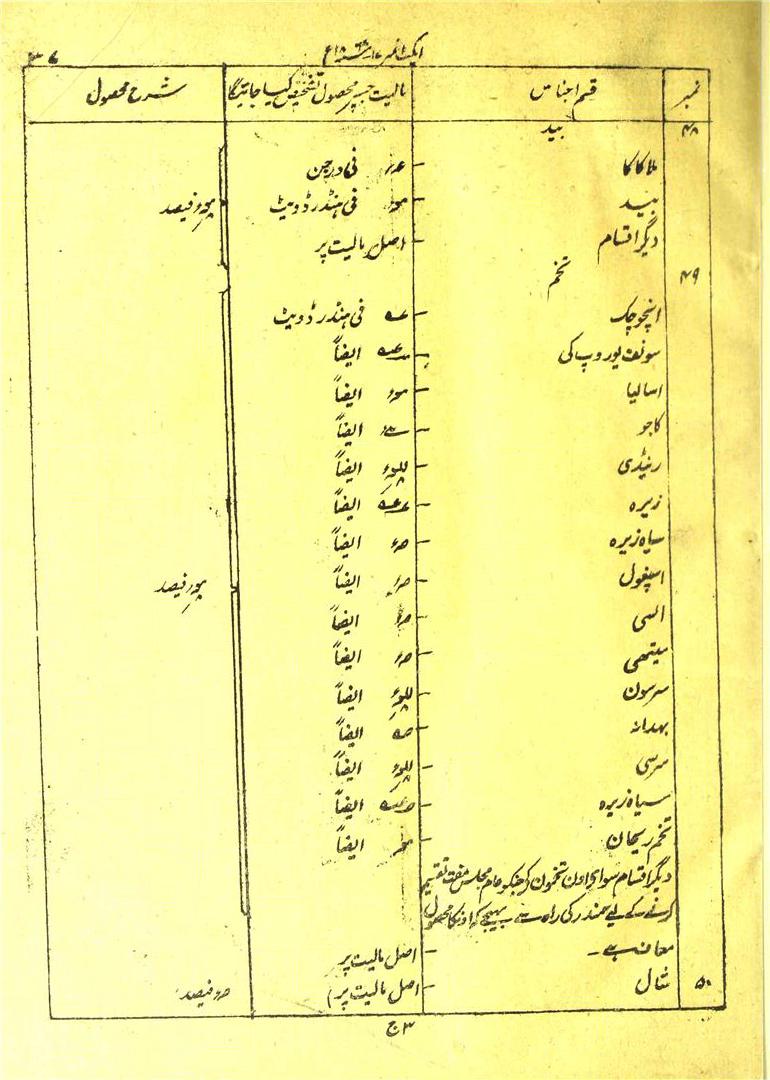 ایکٹ نمبر ۱۷ سنہ ۱۸ ع
۳۷
نمبر قسم اجناس مالیت جسپر محصول تشخیص کیا جائیگا شرح محصول
۴۸ بید
ملاکا کا فی درجن
بید فی ہنڈرڈویٹ فیصد
دیگر اقسام اصل مالیت پر
۴۹ تخم
انچوچک فی ہنڈرڈویٹ
سونف یوروپ کی ایضاً
اسالیا ایضاً
کاجو ایضاً
رینڈی ایضاً
زیرہ ایضاً
سیاہ زیرہ ایضاً
اسپغول ایضاً فیصد
السی ایضاً
میتھی ایضاً
سرسون ایضاً
بہدانہ ایضاً
سرسی ایضاً
سیاہ زیرہ ایضاً
تخم ریحان ایضاً
دیگر اقسام سوای اون تخمون کے جنکو عام مجلس مفت تقسیم
کرنے کے لیے سمندر کی راہ سے بہیجے کہ اونکا محصول
معاف ہے۔ اصل مالیت پر
۵۰ شال اصل مالیت پر) فیصد
۳ ج